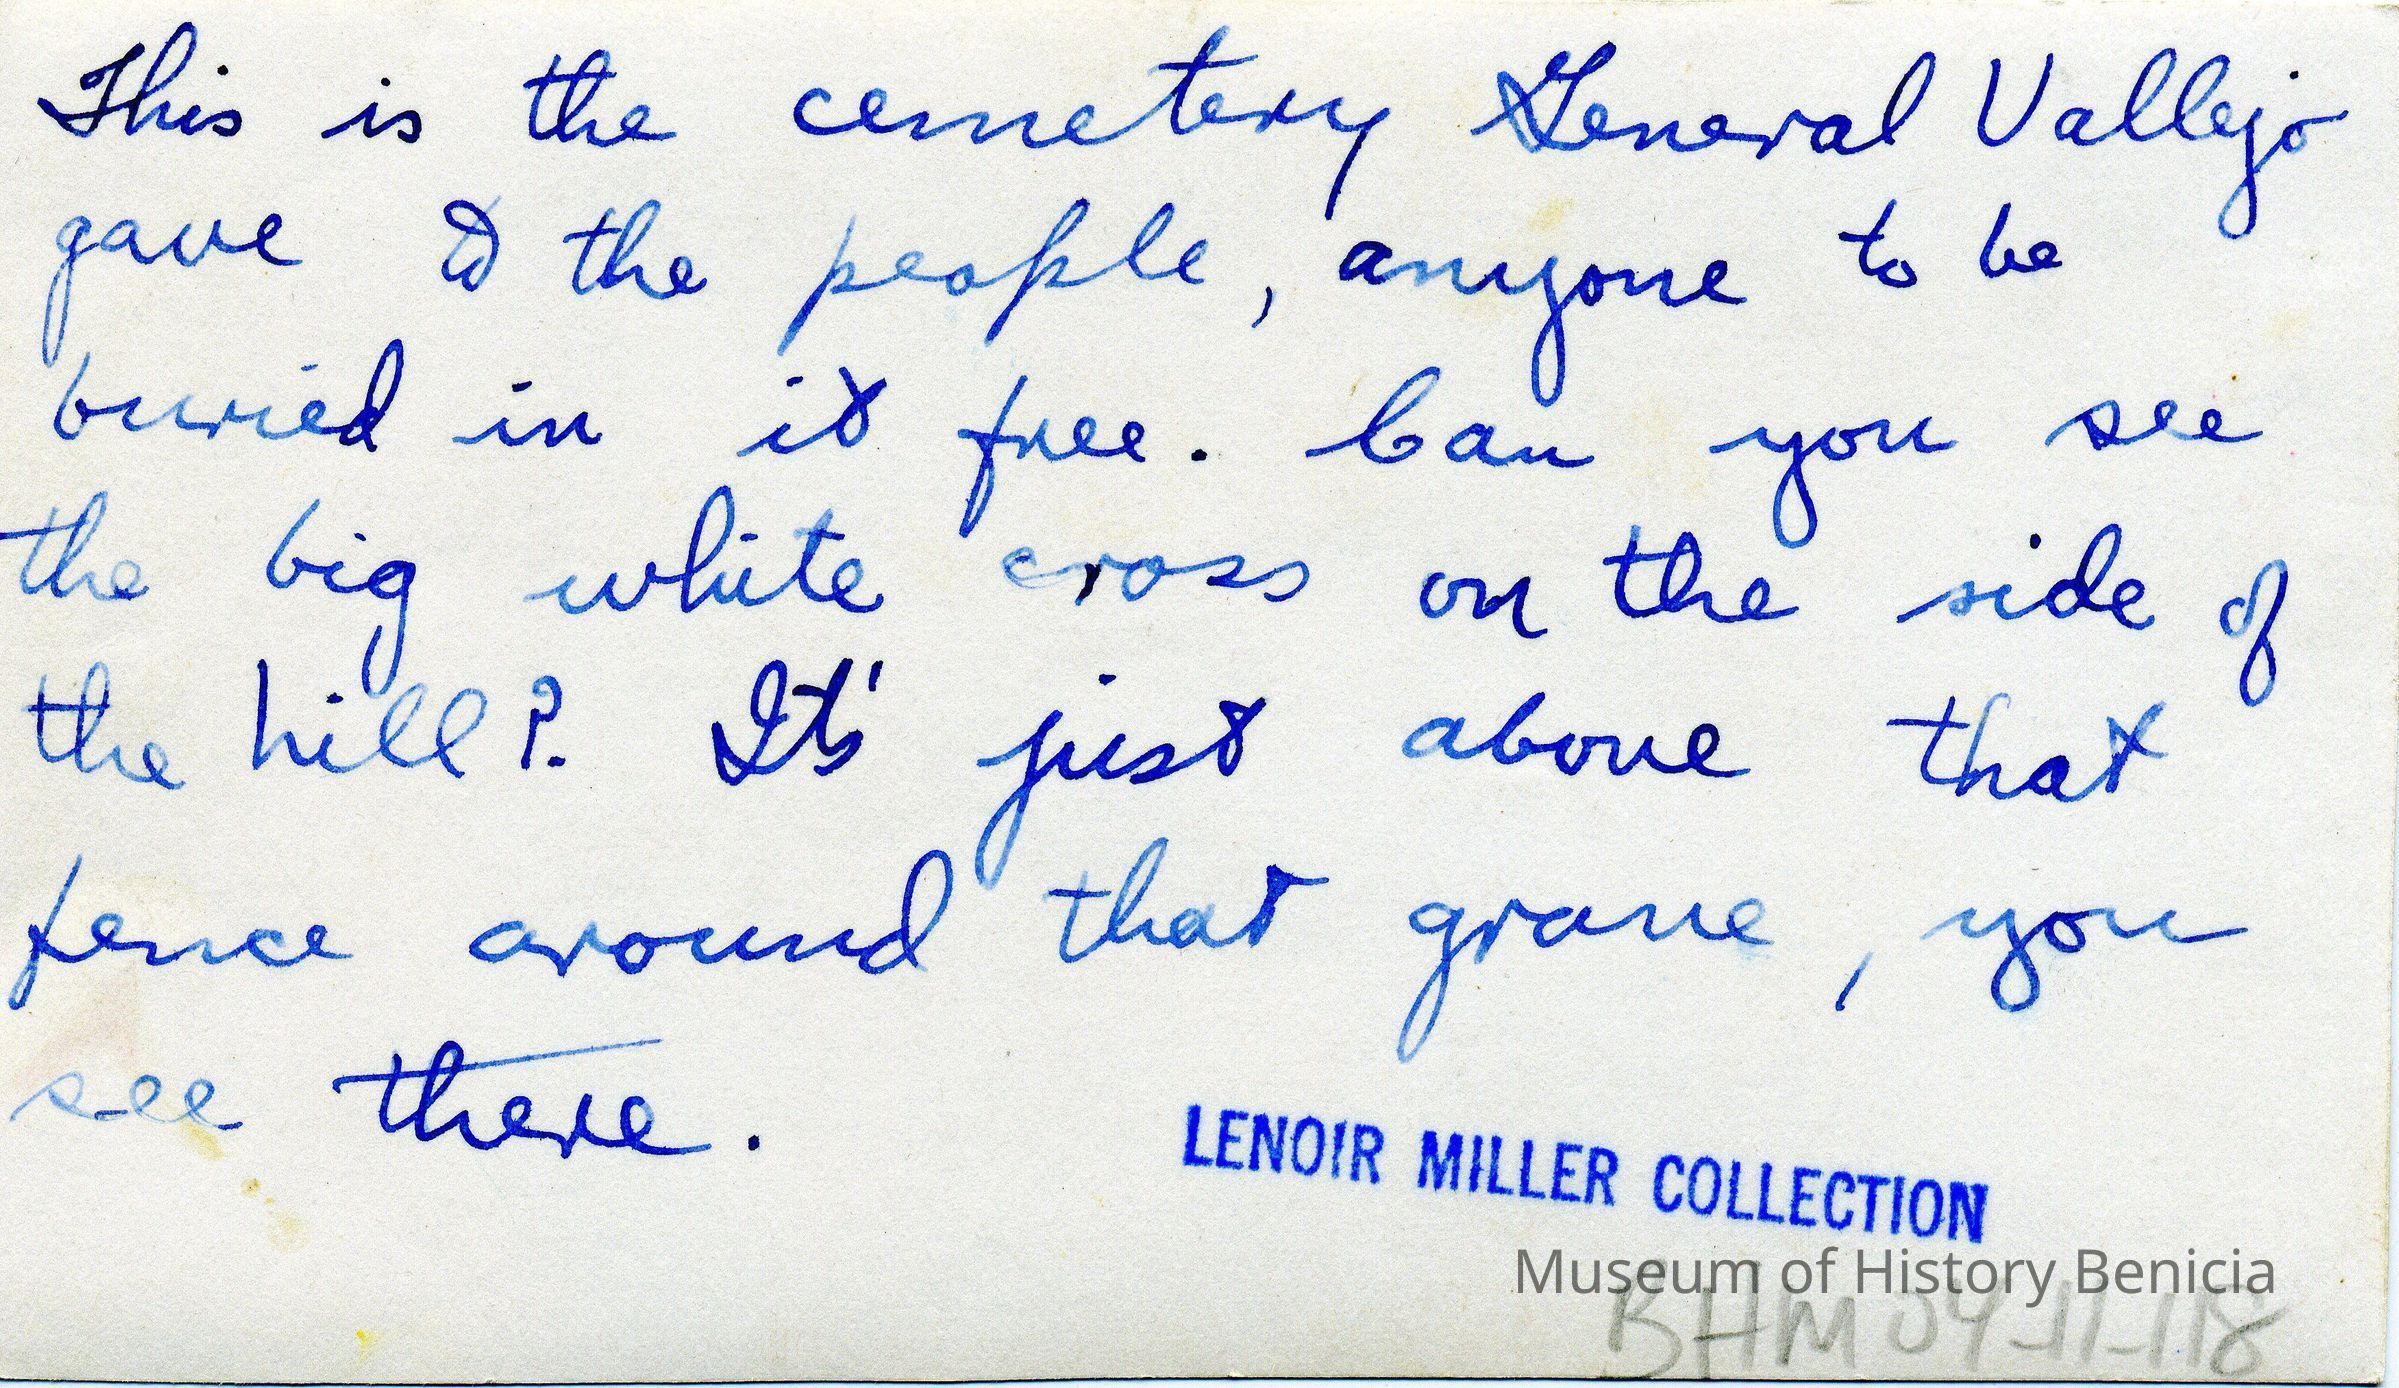 This is the cemetery General Vallejo
gave to the people, anyone to be
buried in it free. Can you see
the big white cross on the side of
the hill? It's just above that
fence around that grave, you
see there.
LENOIR MILLER COLLECTION
Museum of History Benicia
BHM 04-11-118